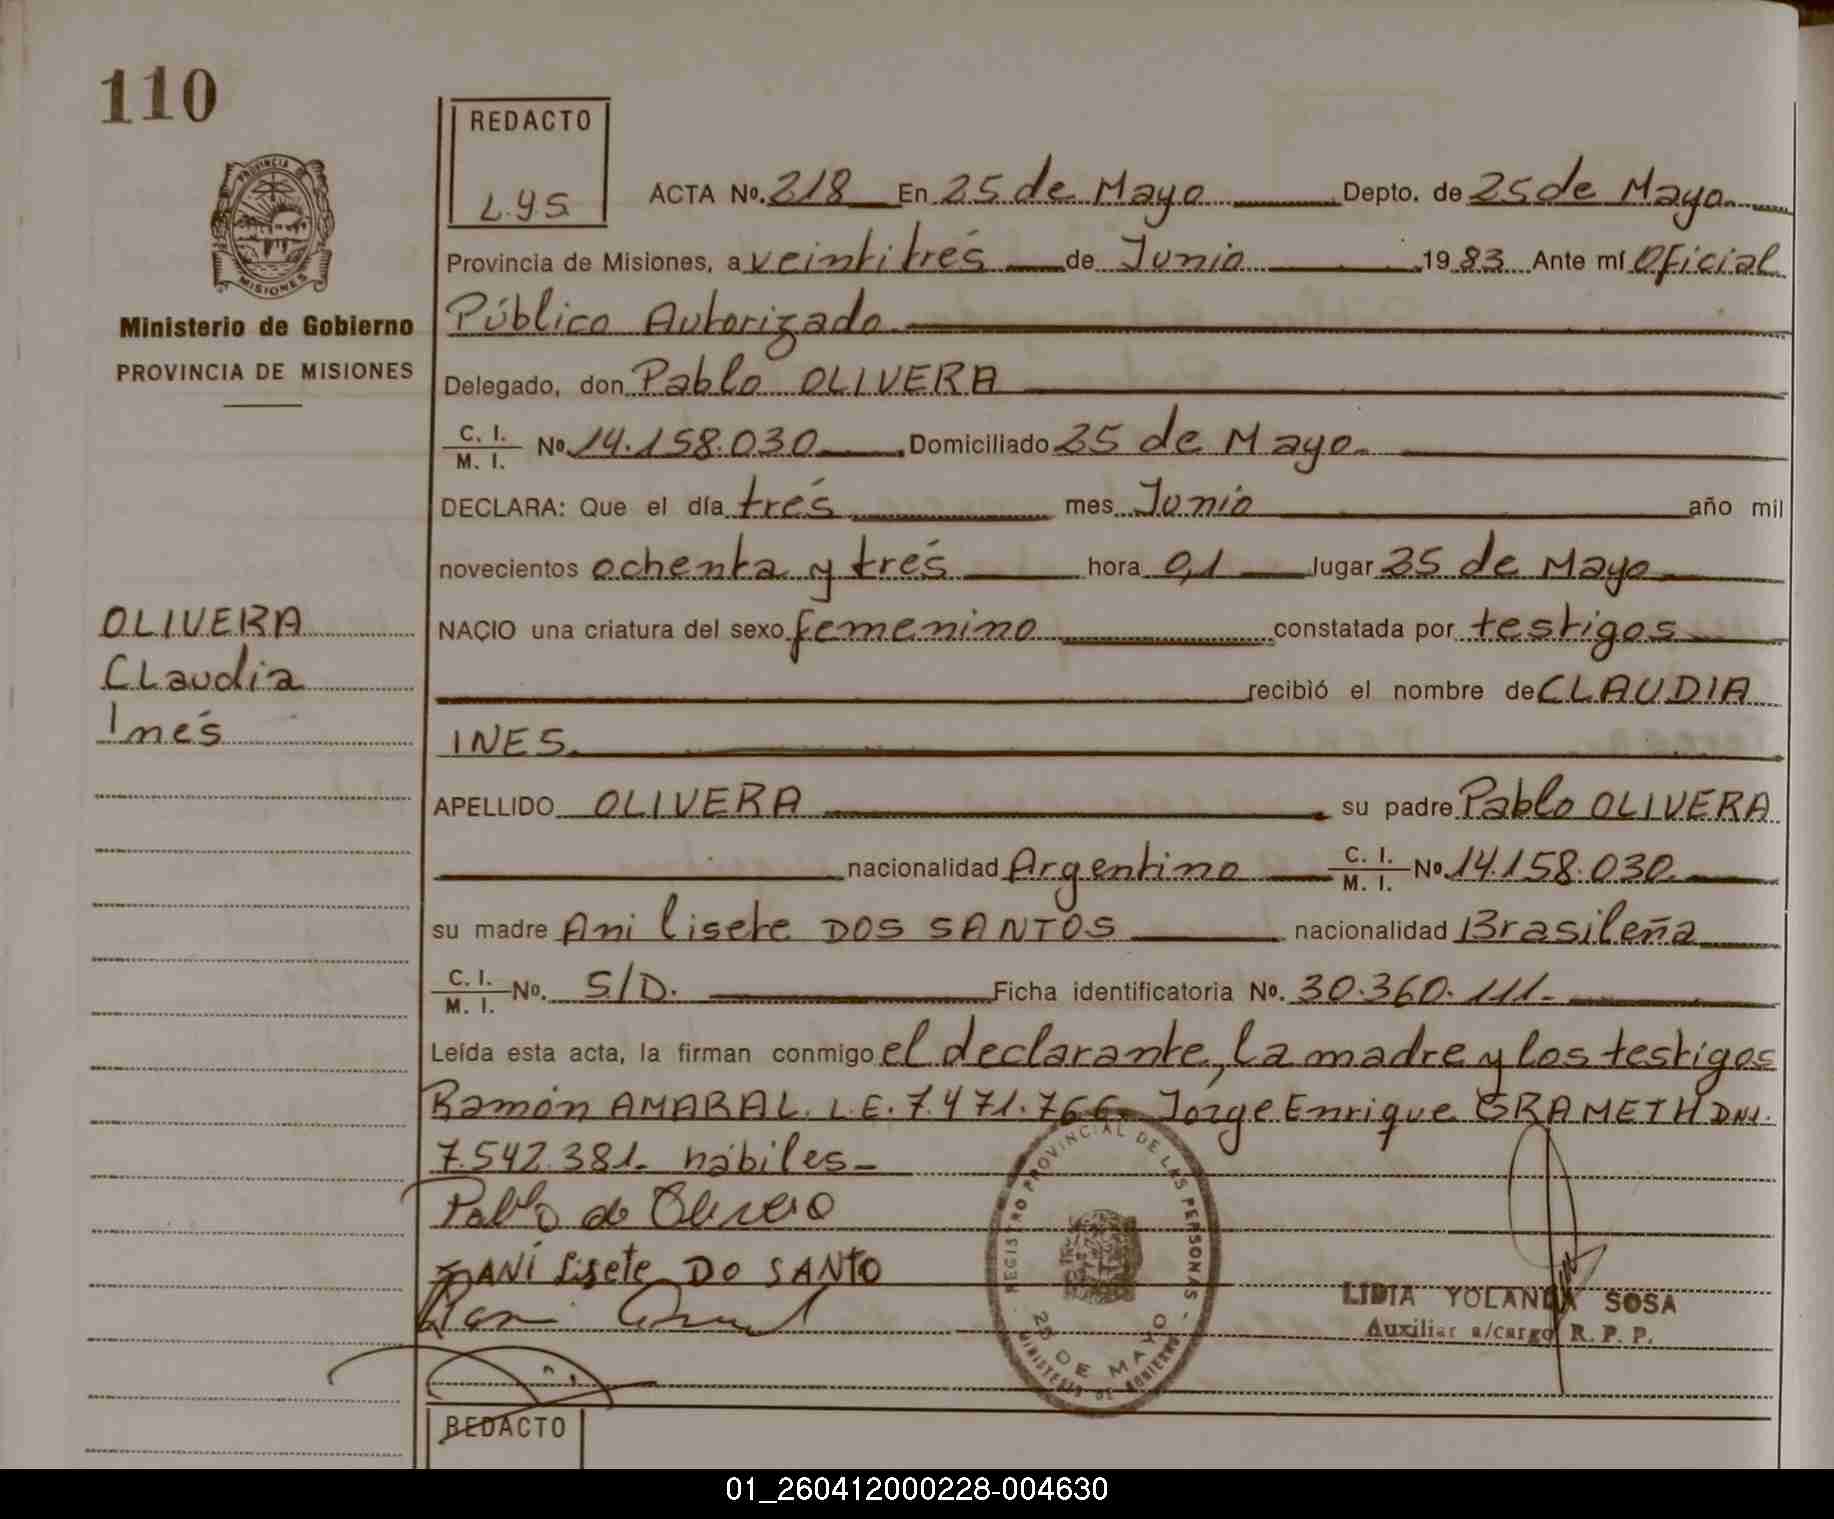 110
REDACTO
L.Y.S.
PROVINCIA
MISIONES
Ministerio de Gobierno
PROVINCIA DE MISIONES
OLIVERA
CLaudia
Inés
ACTA No. 218 En 25 de Mayo Depto. de 25 de Mayo
Provincia de Misiones, a veintitrés de Junio 1983 Ante mí Oficial
Público Autorizado
Delegado, don Pablo OLIVERA
C. I. M. I. No. 14.158.030 Domiciliado 25 de Mayo.
DECLARA: Que el día trés mes Junio año mil
novecientos ochenta y trés hora 0,1 lugar 25 de Mayo
NACIO una criatura del sexo femenino constatada por testigos
recibió el nombre de CLAUDIA
INES.
APELLIDO OLIVERA su padre Pablo OLIVERA
nacionalidad Argentino C. I. M. I. No. 14.158.030.
su madre Ani Lisete DOS SANTOS nacionalidad Brasileña
C. I. M. I. No. S/D. Ficha identificatoria No. 30.360.111.-
Leída esta acta, la firman conmigo el declarante, la madre y los testigos
Ramón AMARAL. L.E. 7.471.766. Jorge Enrique GRAMETH DNI.
7.542.381.- hábiles.-
Pablo de Olivero
ANI Lisete DO SANTO
REGISTRO PROVINCIAL DE LAS PERSONAS
25 DE MAYO
MINISTERIO DE GOBIERNO
LIDIA YOLANDA SOSA
Auxiliar a/cargo R. P. P.
REDACTO
01_260412000228-004630